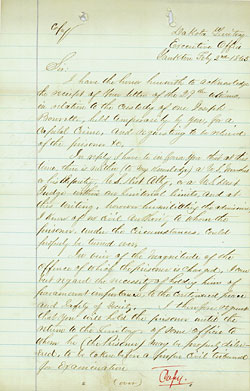 Copy
Dakota Territory
Executive Office
Yankton Feby 2nd 1862
Sir:
I have the honor herewith to acknowledge
the receipt of your letter of the 29th ultimo
in relation to the custody of one Joseph
held temporarily by you, for a
Capital Crime, and requesting to be relieved
of the prisoner &c.
In reply I have to inform you that at this
time, there is neither (to my knowledge) a U.S. Marshal
or his deputy, U.S. Dist. Atty, or a U.S. Dist
Judge within our territorial limits, and at
this writing, however humiliating the admission
I know of no Civil Authority, to whom the
prisoner, under the Circumstances, could
properly be turned over.
In view of the magnitude of the
offence of which the prisoner is charged, I can
but regard the necessity of holding him of
paramount importance, to the Continued peace
and safety of Society. I therefore request
that you will hold the prisoner until the
return to the Territory of some Officer to
whom he (the Prisoner) may be properly deliv-
ered, to be taken before a proper Civil tribunal
for Examination.
(over)
Copy.